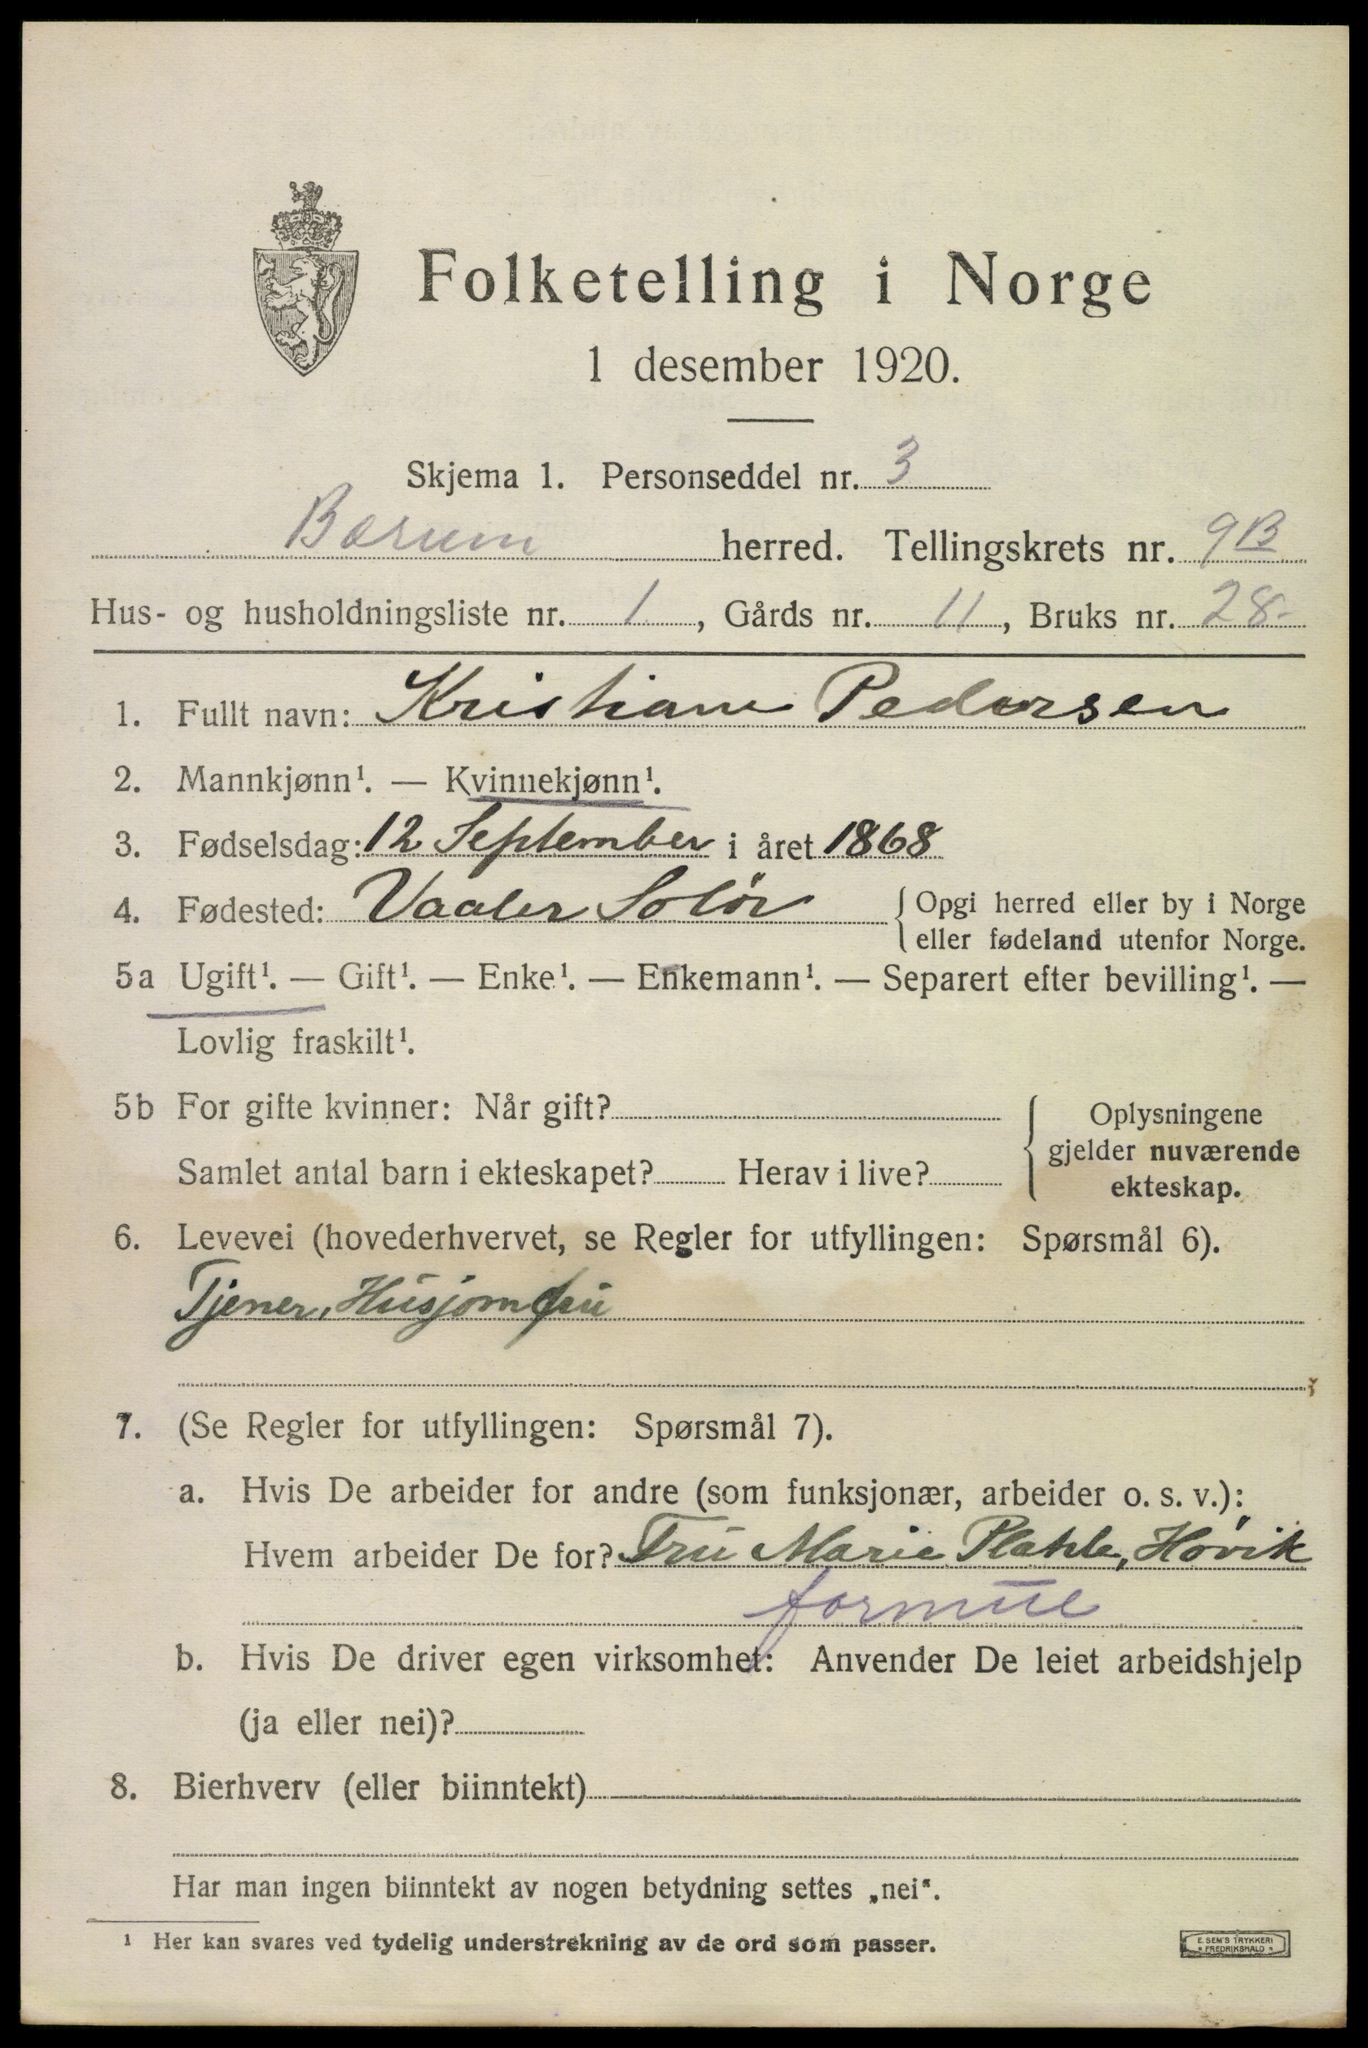 Folketelling i Norge
1 desember 1920.
Skjema 1. Personseddel nr. 3
Bærum herred. Tellingskrets nr. 9B
Hus- og husholdningsliste nr. 1, Gårds nr. 11, Bruks nr. 28-
1. Fullt navn: Kristiane Pedersen
2. Mannkjønn¹. — Kvinnekjønn¹.
3. Fødselsdag: 12 September i året 1868
4. Fødested: Vaaler Solør { Opgi herred eller by i Norge
eller fødeland utenfor Norge.
5a Ugift¹. — Gift¹. — Enke¹. — Enkemann¹. — Separert efter bevilling¹. —
Lovlig fraskilt¹.
5b For gifte kvinner: Når gift? { Oplysningene
gjelder nuværende
Samlet antal barn i ekteskapet? Herav i live? ekteskap.
6. Levevei (hovederhvervet, se Regler for utfyllingen: Spørsmål 6).
Tjener, Husjomfru
7. (Se Regler for utfyllingen: Spørsmål 7).
a. Hvis De arbeider for andre (som funksjonær, arbeider o. s. v.):
Hvem arbeider De for? Fru Marie Plahte, Høvik
formue
b. Hvis De driver egen virksomhet: Anvender De leiet arbeidshjelp
(ja eller nei)?
8. Bierhverv (eller biinntekt)
Har man ingen biinntekt av nogen betydning settes „nei“.
¹ Her kan svares ved tydelig understrekning av de ord som passer.
E. SEM'S TRYKKERI
FREDRIKSHALD